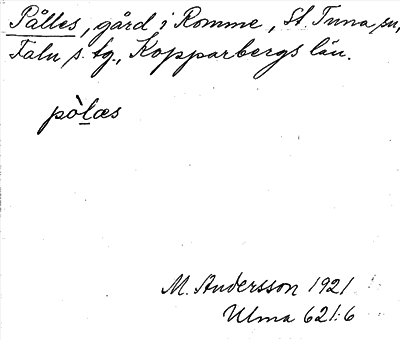 Pålles, gård i Romme, St. Tuna sn,
Falu s. tg., Kopparbergs län.
pò̱læs
M. Andersson 1921
Ulma 621:6